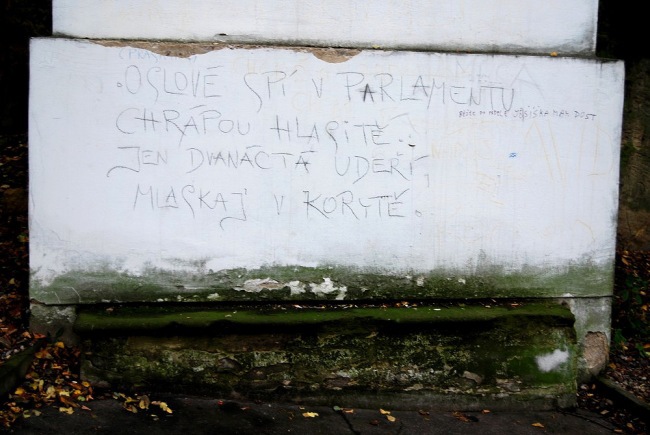 OSLOVÉ SPÍ V PARLAMENTU
CHRÁPOU HLASITĚ.
JEN DVANÁCTÁ UDEŘÍ,
MLASKAJ V KORYTĚ.